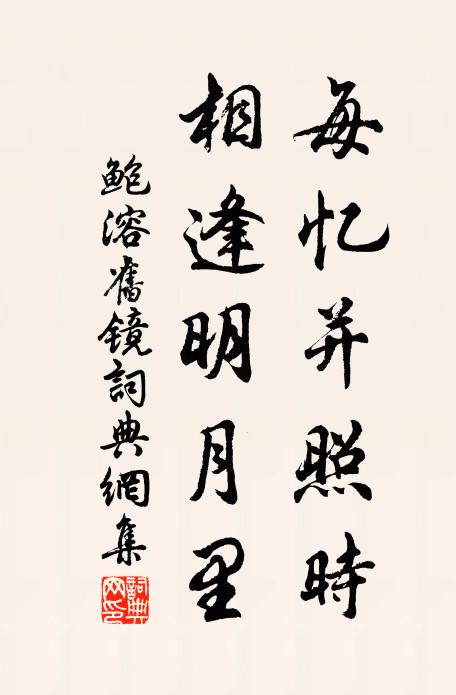 每忆并照時
相逢明月里
鲍溶舊镜詞典網集
詞典网印